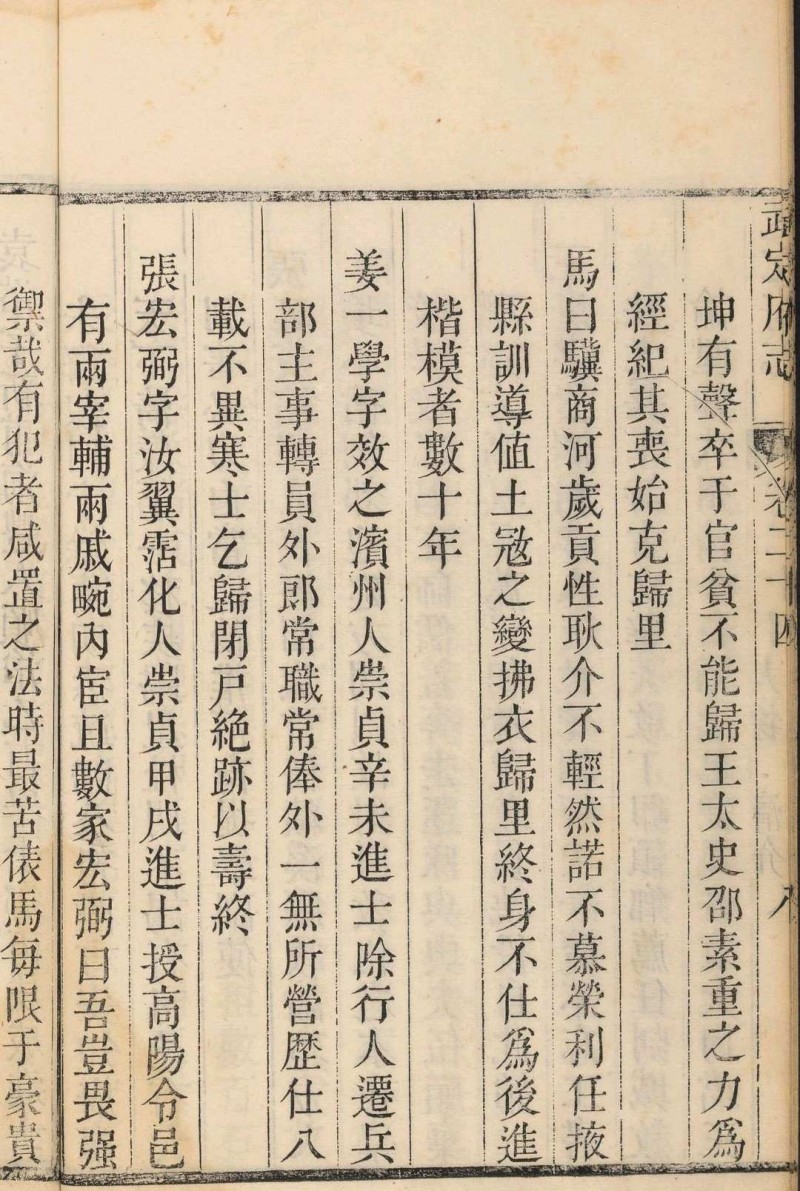 武定府志 卷二十四 八
坤有聲卒于官貧不能歸王太史邵素重之力爲
經紀其喪始克歸里
馬曰驥商河歲貢性耿介不輕然諾不慕榮利任掖
縣訓導值土冦之變拂衣歸里終身不仕爲後進
楷模者數十年
姜一學字效之濱州人崇貞辛未進士除行人遷兵
部主事轉員外郎常職常俸外一無所營歷仕八
載不異寒士乞歸閉戸絶跡以壽終
張宏弼字汝翼霑化人崇貞甲戌進士授高陽令邑
有兩宰輔兩戚畹內宦且數家宏弼曰吾豈畏强
禦哉有犯者咸置之法時最苦俵馬每限于豪貴